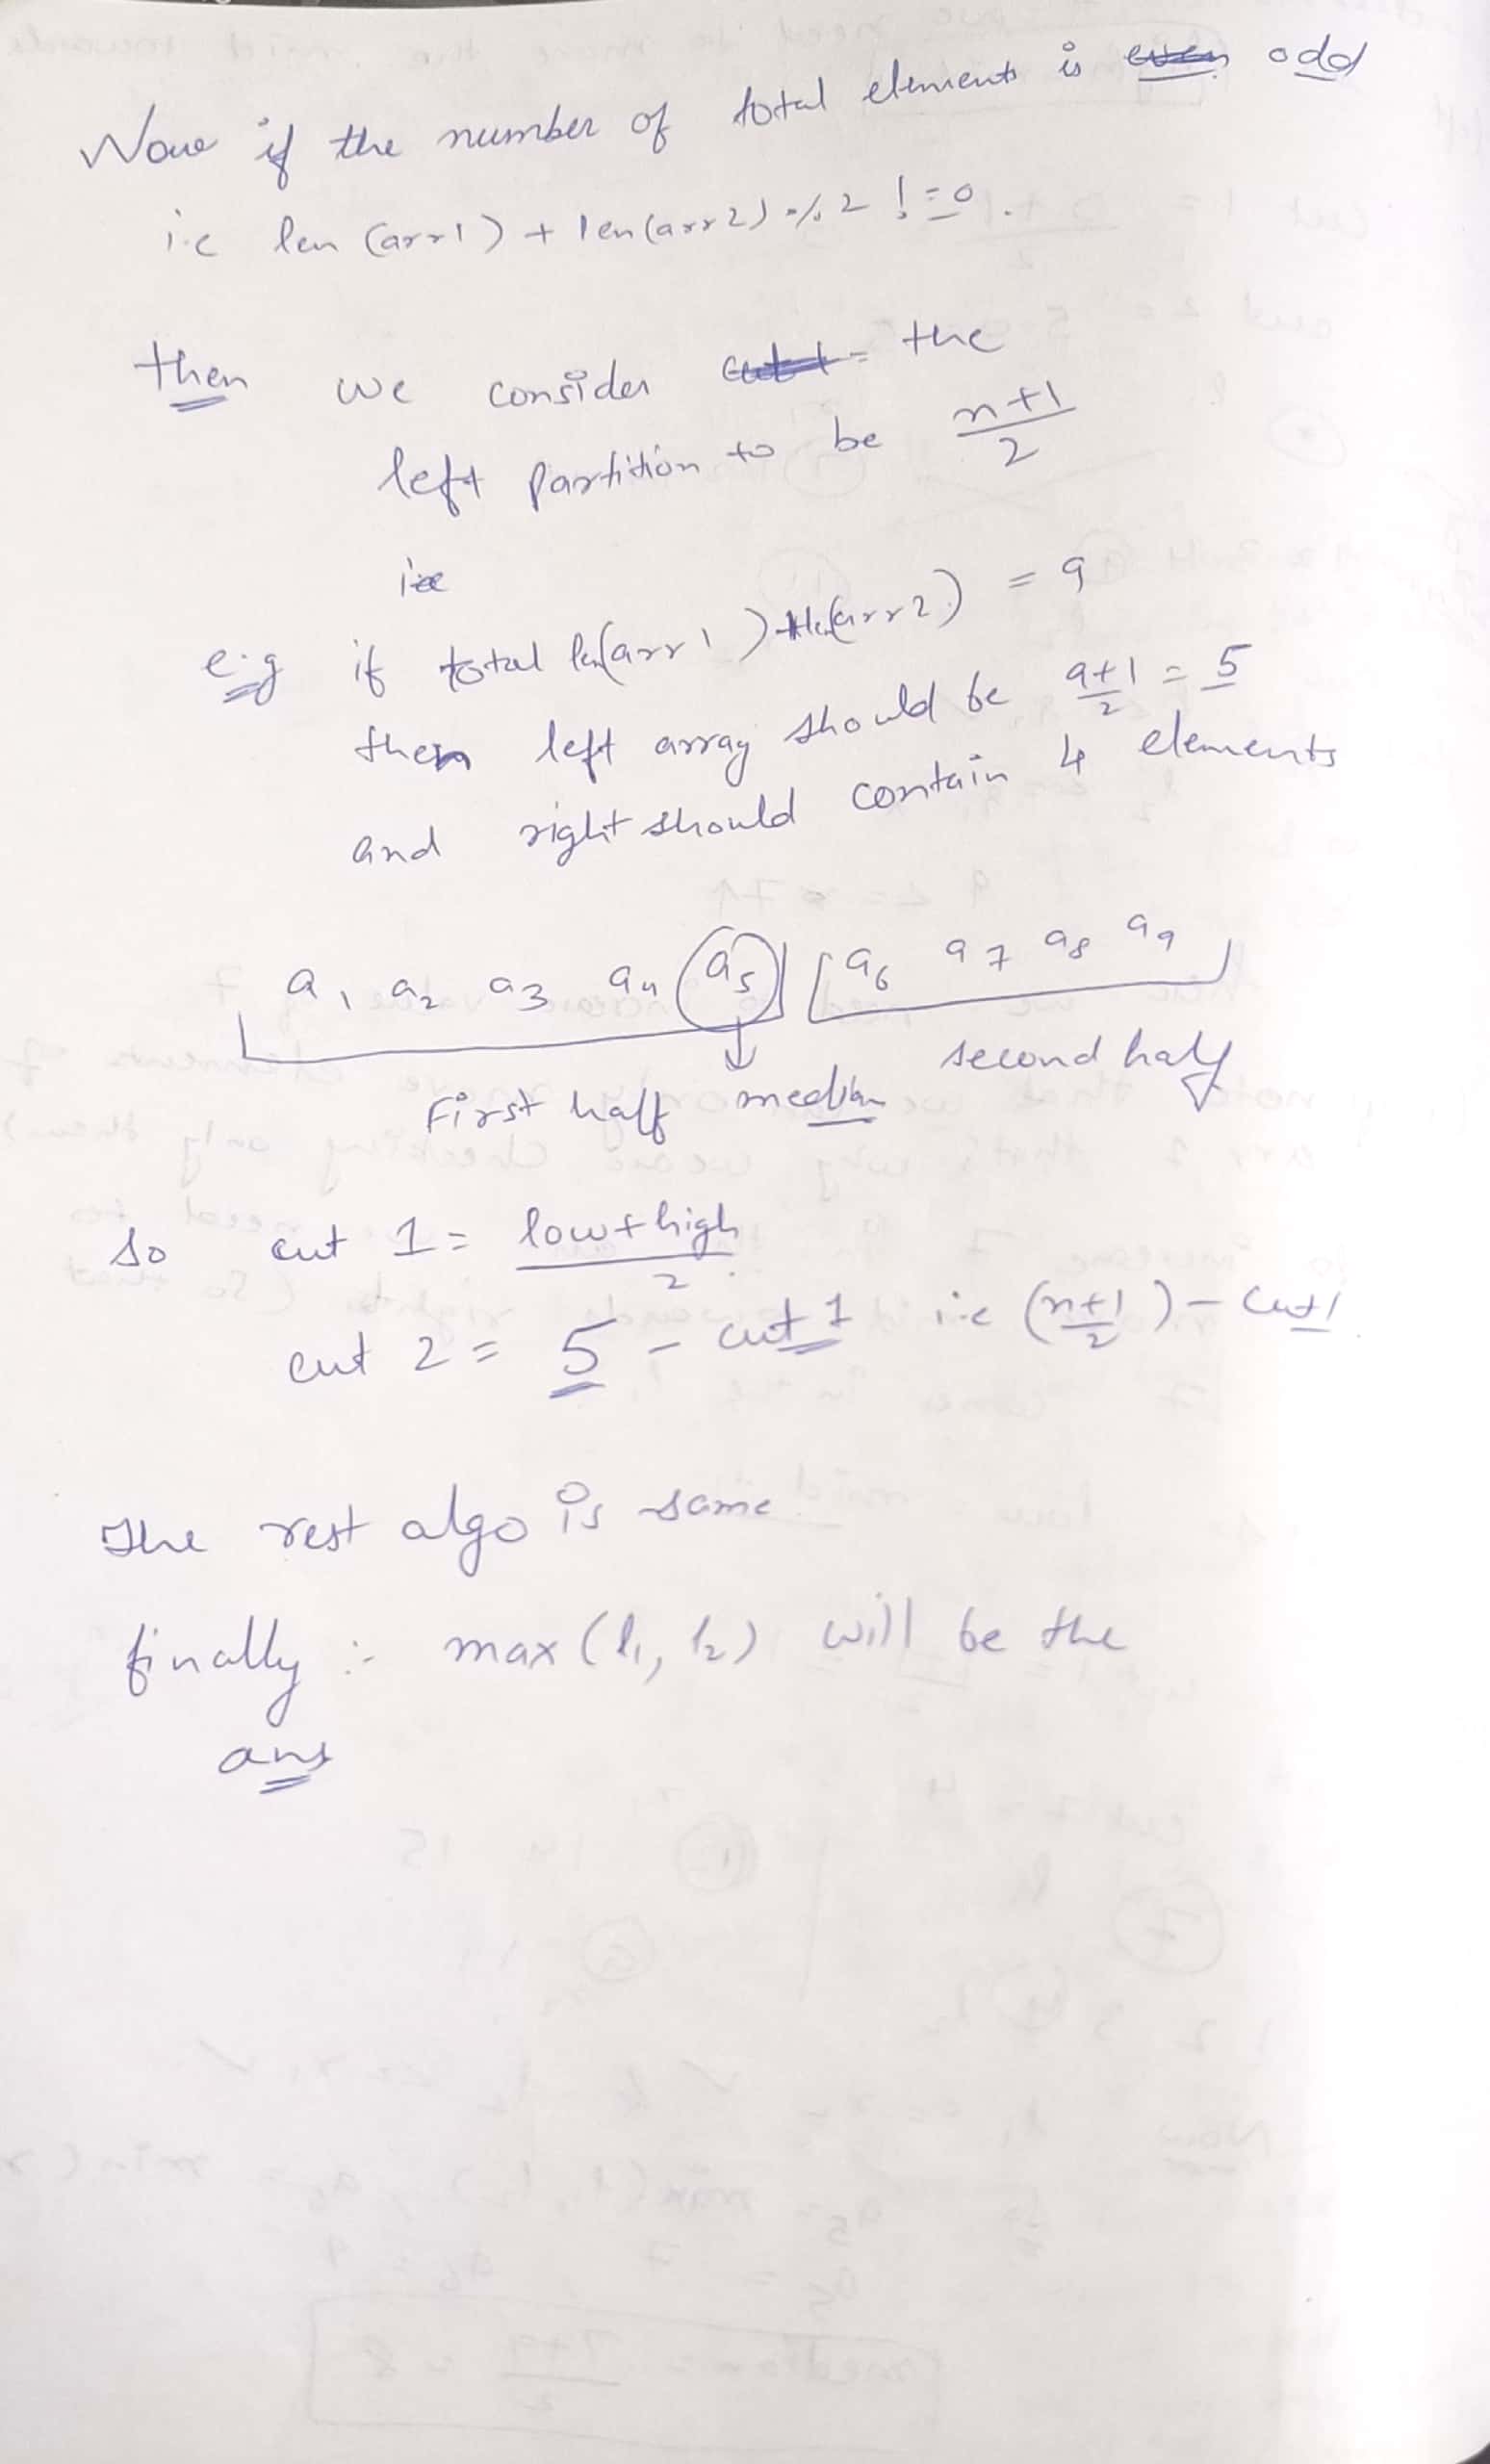 Now if the number of total elements is even odd
i.e len (arr1) + len(arr2) % 2 != 0.
then we consider cut 1 = the
left partition to be n+1/2
i.e
e.g if total len(arr1) + len(arr2) = 9
then left array should be 9+1/2 = 5
and right should contain 4 elements
a1 a2 a3 a4 a5 a6 a7 a8 a9
First half median second half
so cut 1 = low+high/2.
cut 2 = 5 - cut 1 i.e (n+1/2) - cut1
The rest algo is same.
finally :- max (l1, l2) will be the
ans